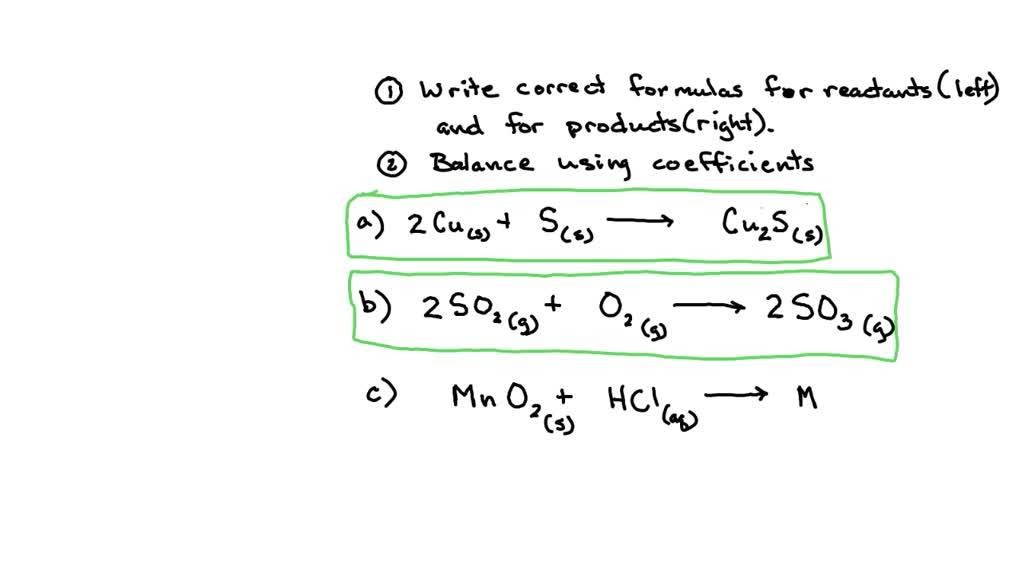 ① Write correct formulas for reactants (left)
and for products (right).
② Balance using coefficients
a) 2 Cu(s) + S(s) → Cu₂S(s)
b) 2 SO₂(g) + O₂(g) → 2 SO₃(g)
c) MnO₂(s) + HCl(aq) → M